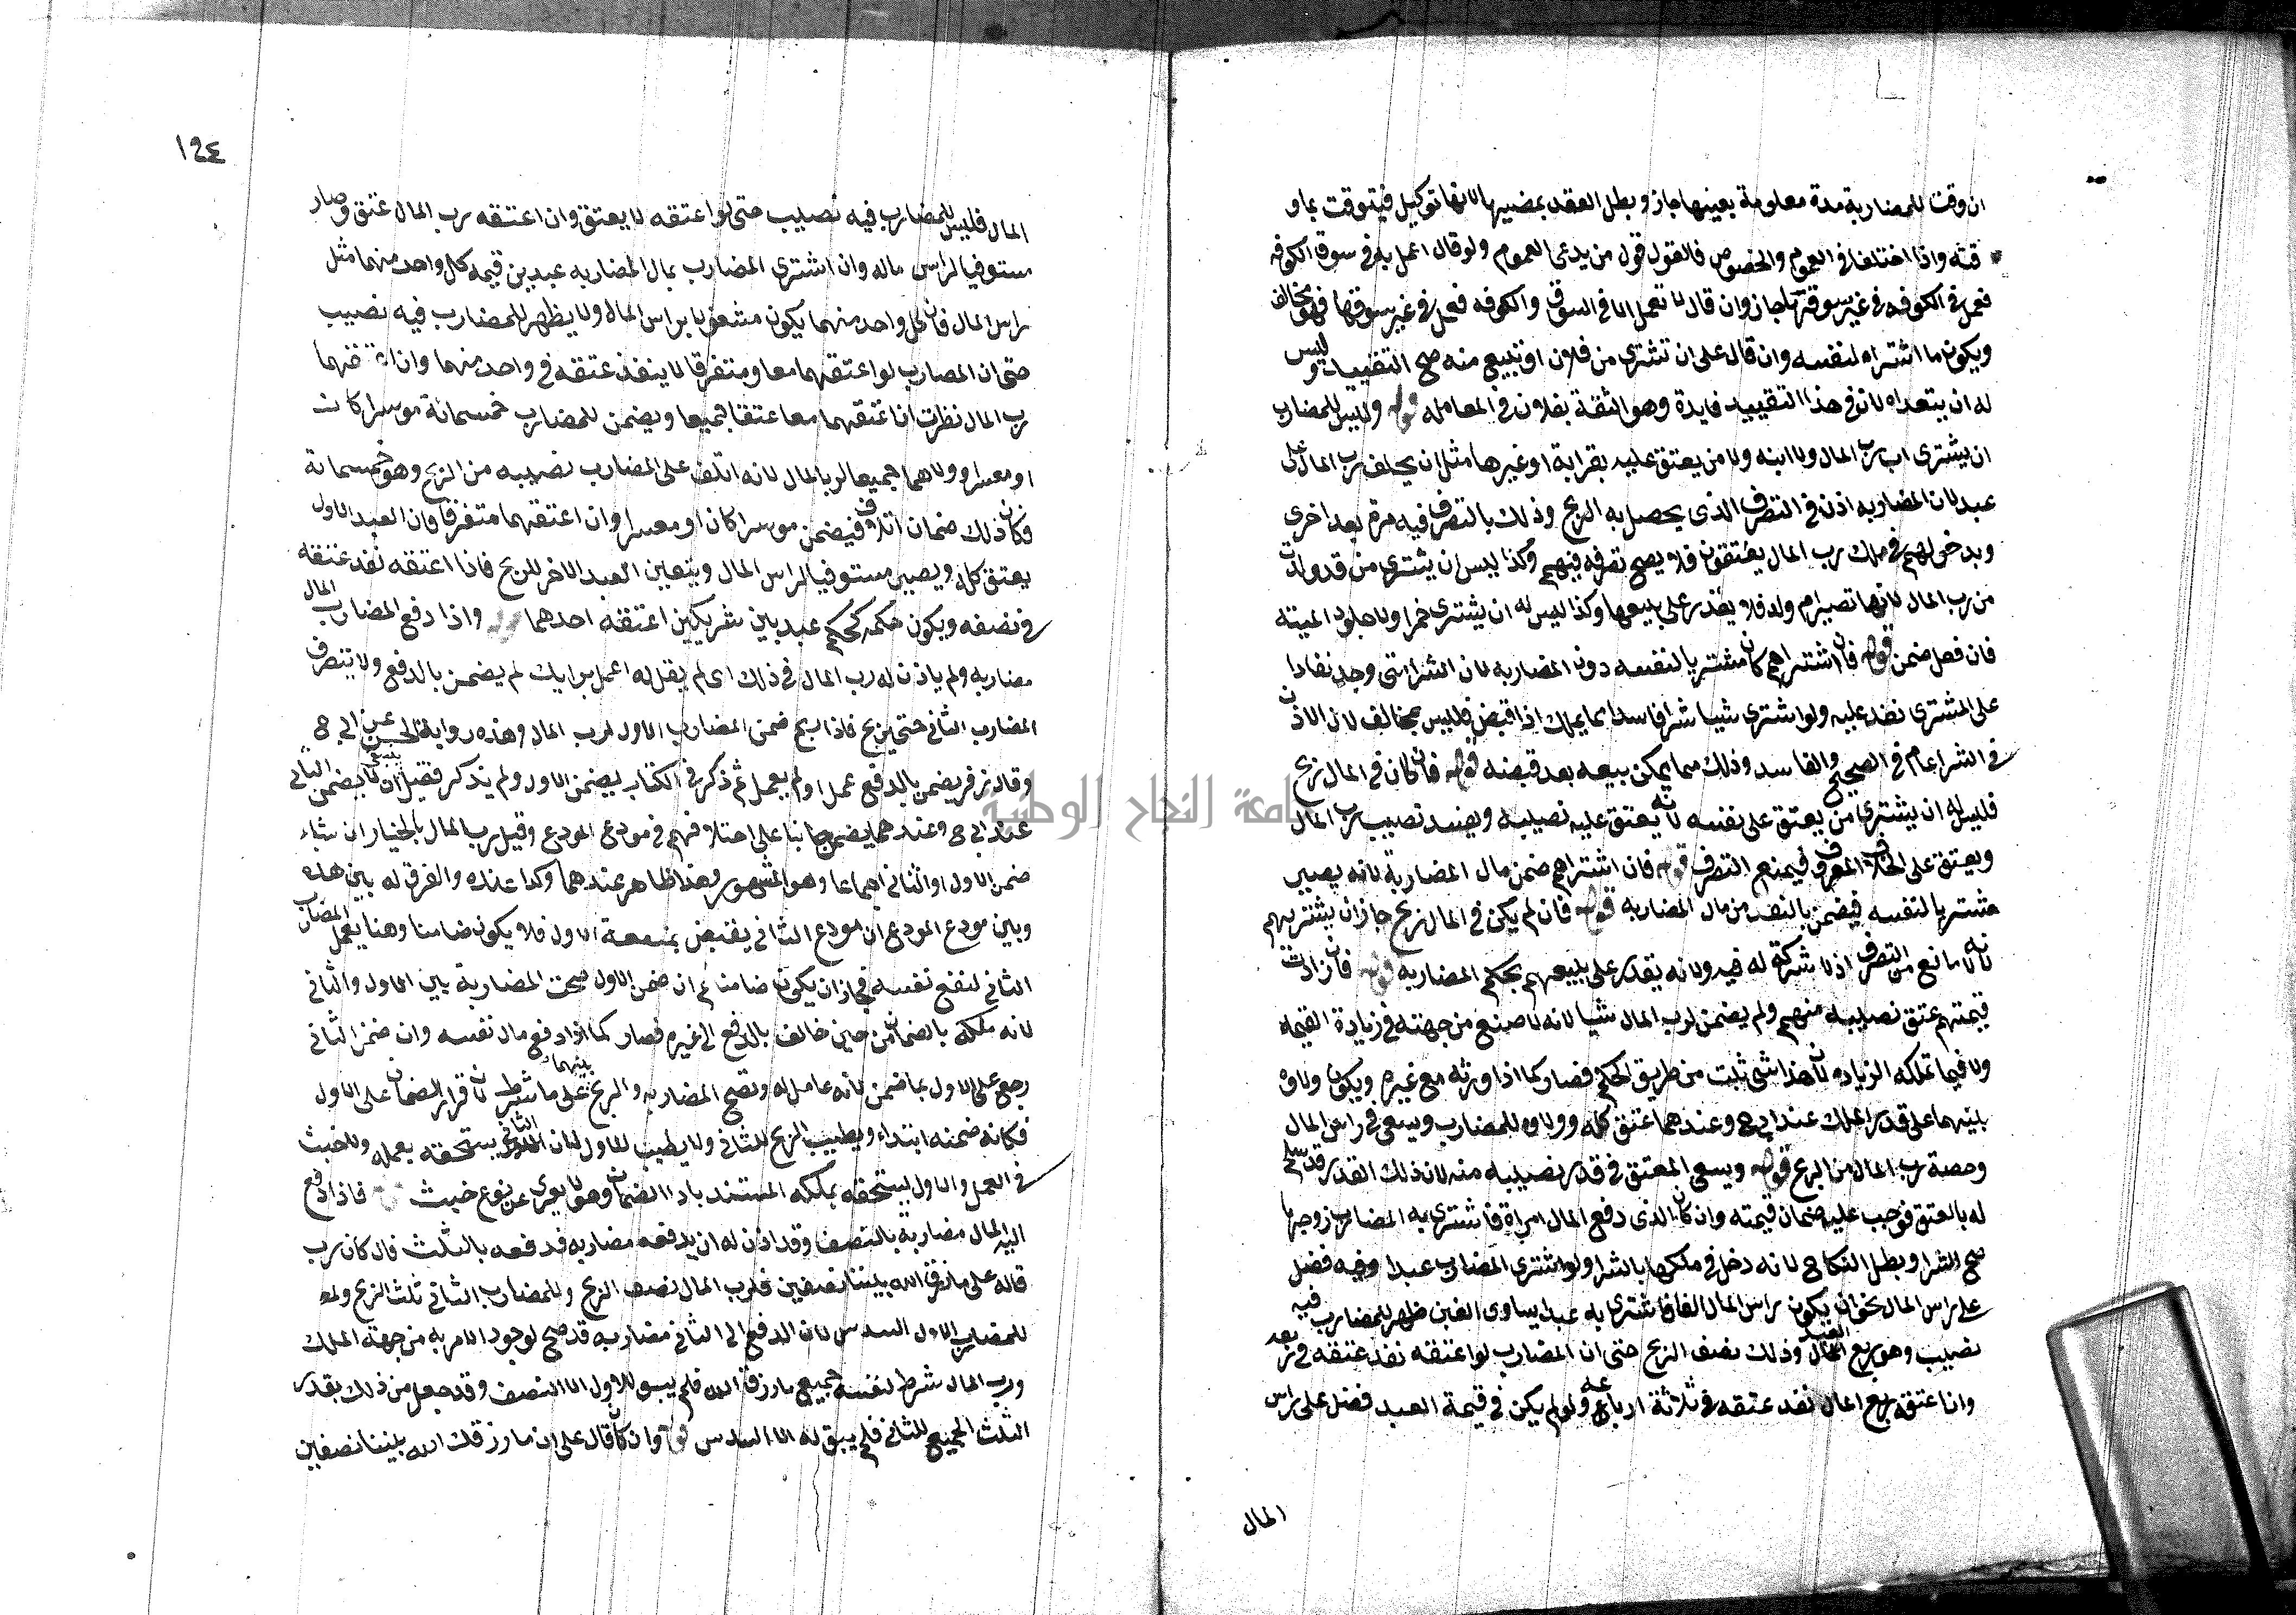 ان وقت للمضاربة مدة معلومة بعينها جاز وبطل العقد بمضيها لانها توكيل فيتوقت بما و
قته واذا اختلفا في العموم والخصوص فالقول قول من يدعي العموم ولو قال اعمل به في سوق الكوفه
فعمل في الكوفه في غير سوقها جاز وان قال لا تعمل الا في السوق والكوفه فعمل في غير سوقها فهو مخالف
ويكون ما اشتراه لنفسه وان قال على ان تشتري من فلان او تبيع منه صح التقييد وليس
له ان يتعداه لان في هذا التقييد فايدة وهو الثقة بفلان في المعامله قوله وليس للمضارب
ان يشتري اب رب المال ولا ابنه ولا من يعتق عليه بقرابة او غيرها مثل ان يحلف رب المال على
عبد لان المضاربه اذن في التصرف الذي يحصل به الربح وذلك بالتصرف فيه مرة بعد اخرى
وبدخولهم في ملك رب المال يعتقون فلا يصح تصرفه فيهم وكذا ليس ان يشتري من قد ولدت
من رب المال لانها تصير ام ولد فلا يقدر على بيعها وكذا ليس له ان يشتري خمرا ولا جلود الميتة
فان فعل ضمن قوله فان اشتراهم كان مشتريا لنفسه دون المضاربه لان الشرا متى وجد نفاذا
على المشتري نفذ عليه ولو اشترى شيا شرا فاسدا بما يملك اذا قبض فليس بمخالف لان الاذن
في الشرا عام في الصحيح والفاسد وذلك مما يمكن بيعه بعد قبضه قوله فان كان في المال ربح
فليس له ان يشتري من يعتق على نفسه لانه يعتق عليه نصيبه ويفسد نصيب رب المال
ويعتق على الخلاف المعروف فيمتنع التصرف قوله فان اشتراهم ضمن مال المضاربة لانه يصير
مشتريا لنفسه فيضمن بالنقد من مال المضاربه قوله فان لم يكن في المال ربح جاز ان يشتريهم
لانه لا مانع من التصرف اذ لا شركة له فيه ولانه يقدر على بيعهم بحكم المضاربه قوله فان زادت
قيمتهم عتق نصيبه منهم ولم يضمن لرب المال شيا لانه لا صنع من جهته في زيادة القيمة
ولا فيما تملكه الزياده لان هذا شي ثبت من طريق الحكم فصار كما اذا ورثه مع غيره ويكون ولاوه
بينهما على قدر الملك عند ابي ح وعندهما عتق كله وولاوه للمضارب ويسعى في راس المال
وحصة رب المال من الربح قوله ويسعى المعتق في قدر نصيبه منه لان ذلك القدر قد سلم
له بالعتق فوجب عليه ضمان قيمته وان كان الذي دفع المال امراة فاشترى به المضارب زوجها
صح الشرا وبطل النكاح لانه دخل في ملكها بالشرا ولو اشترى المضارب عبدا وفيه فضل
على راس المال نحو ان يكون راس المال الفا فاشترى به عبدا يساوي الفين ظهر للمضارب فيه
نصيب وهو ربع العبد وذلك نصف الربح حتى ان المضارب لو اعتقه نفذ عتقه في ربعه
وان اعتقه رب المال نفذ عتقه في ثلاثة ارباعه ولو لم يكن في قيمة العبد فضل على راس
المال
١٩٤
المال فليس للمضارب فيه نصيب حتى لو اعتقه لا يعتق وان اعتقه رب المال عتق وصار
مستوفيا لراس ماله وان اشترى المضارب بمال المضاربه عبدين قيمة كل واحد منهما مثل
راس المال فان كل واحد منهما يكون مشغولا براس المال ولا يظهر للمضارب فيه نصيب
حتى ان المضارب لو اعتقهما معا ومتفرقا لا ينفذ عتقه في واحد منهما وان اعتقهما
رب المال نظرت ان اعتقهما معا عتقا جميعا ويضمن للمضارب خمسمائة موسرا كان
او معسرا وولاهما جميعا لرب المال لانه اتلف على المضارب نصيبه من الربح وهو خمسمائة
فكان ذلك ضمان اتلاف فيضمن موسرا كان او معسرا وان اعتقهما متفرقا فان العبد الاول
يعتق كله ويصير مستوفيا لراس المال ويتعين العبد الاخر للربح فاذا اعتقه نفذ عتقه
في نصفه ويكون حكمه كحكم عبد بين شريكين اعتقه احدهما قوله واذا دفع المضارب المال
مضاربه ولم ياذن له رب المال في ذلك اي لم يقل له اعمل برايك لم يضمن بالدفع ولا يتصرف
المضارب الثاني حتى يربح فاذا ربح ضمن المضارب الاول لرب المال وهذه رواية الحسن عن ابي ح
وقال زفر يضمن بالدفع عمل او لم يعمل ثم ذكر في الكتاب يضمن الاول ولم يذكر فقيل ينبغي ان لا يضمن الثاني
عند ابي ح وعندهما يضمن بنا على اختلافهم في مودع المودع وقيل رب المال بالخيار ان شاء
ضمن الاول او الثاني اجماعا وهو المشهور وهذا ظاهر عندهما وكذا عنده والفرق له بين هذه
وبين مودع المودع ان مودع الثاني يقبض بمنفعة الاول فلا يكون ضامنا وهنا يعمل المضارب
الثاني لنفع نفسه فجاز ان يكون ضامنا ثم ان ضمن الاول صحت المضاربة بين الاول والثاني
لانه ملكه بالضمان من حين خالف بالدفع الى غيره فصار كما اذا دفع مال نفسه وان ضمن الثاني
رجع على الاول بما ضمن لانه عامل له وتصح المضاربه والربح بينهما على ما شرط لان قرار الضمان على الاول
فكانه ضمنه ابتداء ويطيب الربح للثاني ولا يطيب للاول لان الثاني يستحقه بعمله ولا خبث
في العمل والاول يستحقه بملكه المستند باداا الضمان وهو لا يعرى عن نوع خبث قوله فاذا دفع
اليه المال مضاربة بالنصف وقد اذن له ان يدفعه مضاربه فدفعه بالثلث فان كان رب
قاله على ما رزق الله بيننا نصفين فلرب المال نصف الربح وللمضارب الثاني ثلث الربح و
للمضارب الاول السدس لان الدفع الى الثاني مضاربه قد صح لوجود الامر به من جهة الملك
ورب المال شرط لنفسه جميع ما رزق الله فلم يبق للاول الا النصف وقد جعل من ذلك بقدر
الثلث الجميع للثاني فلم يبق له الا السدس قوله وان كان قال على ان ما رزقك الله بيننا نصفين
جامعة النجاح الوطنية